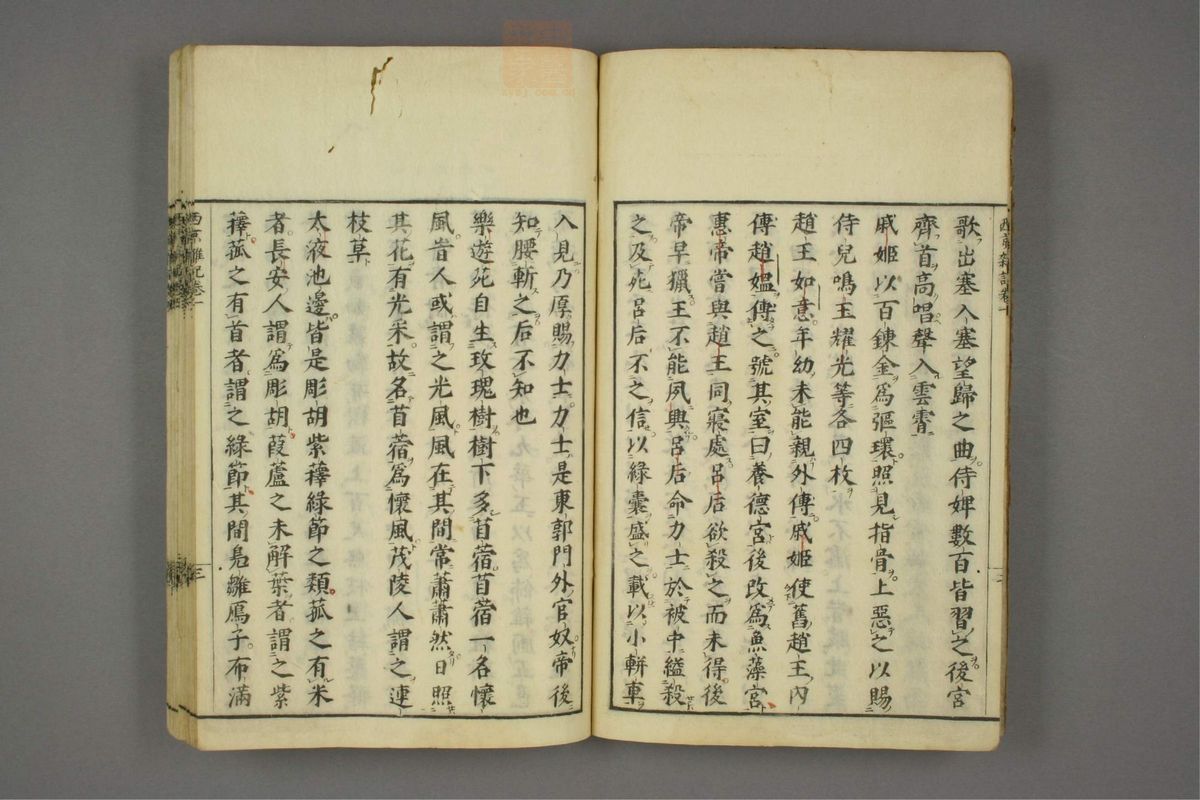 歌出塞入塞望歸之曲侍婢數百皆習之後宮
齊首高唱聲入雲霄
戚姬以百鍊金爲彄環照見指骨上惡之以賜
侍兒鳴玉耀光等各四枚
趙王如意年幼未能親外傅戚姬使舊趙王內
傅趙媼傅之號其室曰養德宮後改爲魚藻宮
惠帝嘗與趙王同寢處呂后欲殺之而未得後
帝早獵王不能夙興呂后命力士於被中縊殺
之及死呂后不之信以綠囊盛之載以小軿車
入見乃厚賜力士力士是東郭門外官奴帝後
知腰斬之后不知也
樂遊苑自生玫瑰樹樹下多苜蓿苜蓿一名懷
風旹人或謂之光風風在其間常蕭蕭然日照
其花有光采故名苜蓿爲懷風茂陵人謂之連
枝草
太液池邊皆是彫胡紫蘀綠節之類菰之有米
者長安人謂爲彫胡葭蘆之未解葉者謂之紫
蘀菰之有首者謂之綠節其間鳧雛鴈子布滿
西京雜記卷一
三